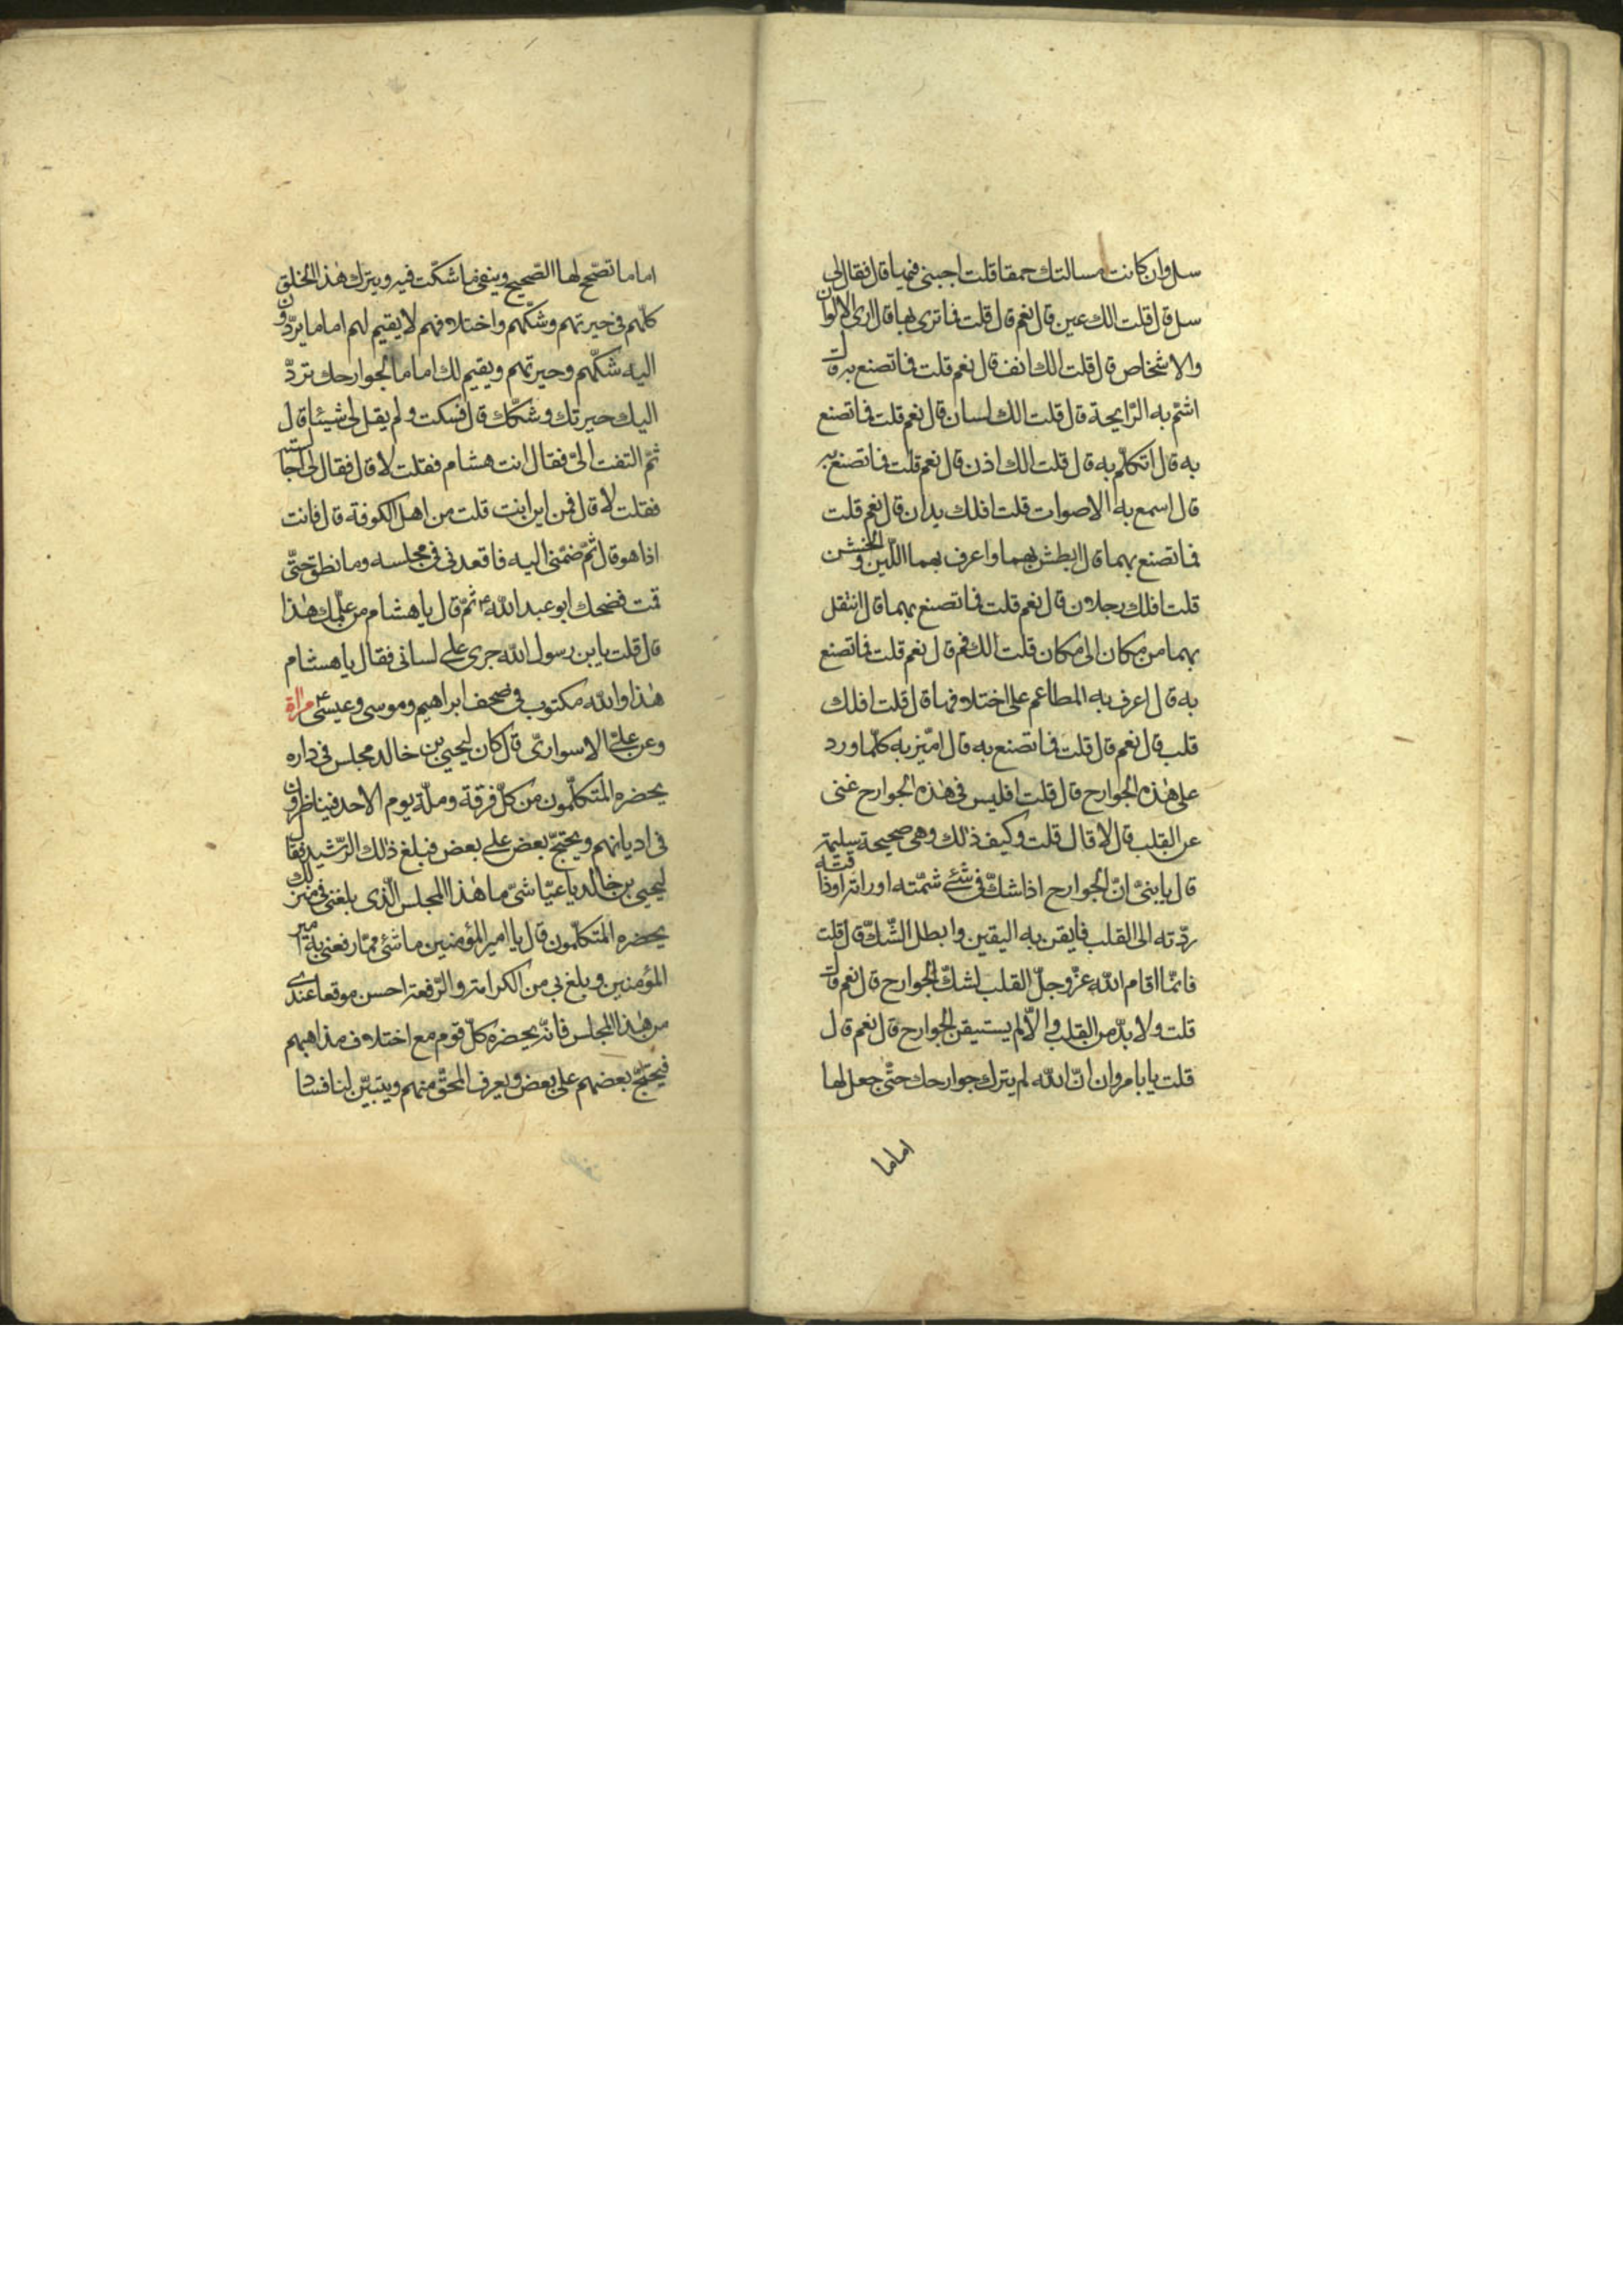 سل وان كانت مسالتك حمقا قلت اجبنى فيها قال فقال لى
سل قال قلت الك عين قال نعم قال قلت فما ترى بها قال ارى الالوان
والاشخاص قال قلت الك انف قال نعم قلت فما تصنع به قال
اشتمّ به الرّايحة قال قلت الك لسان قال نعم قلت فما تصنع
به قال اتكلّم به قال قلت الك اذن قال نعم قلت فما تصنع به
قال اسمع به الاصوات قلت افلك يدان قال نعم قلت
فما تصنع بهما قال ابطش بهما واعرف بهما اللّين والخشن
قلت افلك رجلان قال نعم قلت فما تصنع بهما قال انتقل
بهما من مكان الى مكان قلت الك فم قال نعم قلت فما تصنع
به قال اعرف به المطاعم على اختلافها قال قلت افلك
قلب قال نعم قال قلت فما تصنع به قال اميّز به كلّما ورد
على هذه الجوارح قال قلت افليس فى هذه الجوارح غنى
عن القلب قال لا قال قلت وكيف ذلك وهى صحيحة سليمة
قال يا بنىّ انّ الجوارح اذا شكّ فى شئ شمّته او راته او ذاقته
ردّته الى القلب فايقن به اليقين وابطل الشّكّ قال قلت
فانّما اقام اللّه عزّ وجلّ القلب لشكّ الجوارح قال نعم قال
قلت ولا بدّ من القلب والّا لم يستيقن الجوارح قال نعم قال
قلت يا با مروان انّ اللّه لم يترك جوارحك حتّى جعل لها
اماما
اماما تصحّح لها الصّحيح وينفى ما شكّت فيه ويترك هذا الخلق
كلّهم فى حيرتهم وشكّهم واختلافهم لا يقيم لهم اماما يردّون
اليه شكّهم وحيرتهم ويقيم لك اماما لجوارحك تردّ
اليك حيرتك وشكّك قال فسكت ولم يقل لى شيئا قال
ثمّ التفت الىّ فقال انت هشام فقلت لا قال فقال لى اجالسته
فقلت لا قال فمن اين انت قلت من اهل الكوفة قال فانت
اذا هو قال ثمّ ضمّنى اليه فاقعدنى فى مجلسه وما نطق حتّى
قمت فضحك ابو عبد اللّه ع ثمّ قال يا هشام من علّمك هذا
قال قلت يا بن رسول اللّه جرى على لسانى فقال يا هشام
هذا واللّه مكتوب فى صحف ابراهيم وموسى وعيسى ع مراة
وعن علىّ الاسوارىّ قال كان ليحيى بن خالد مجلس فى داره
يحضره المتكلّمون من كلّ فرقة وملّة يوم الاحد فيناظرون
فى اديانهم ويحتجّ بعض على بعض فبلغ ذلك الرّشيد فقال
ليحيى بن خالد يا عبّاسّى ما هذا المجلس الّذى بلغنى فى منزلك
يحضره المتكلّمون قال يا امير المؤمنين ما شئ ممّا رفعنى به امير
المؤمنين وبلغ بى من الكرامة والرّفعة احسن موقعا عندى
من هذا المجلس فانّه يحضره كلّ قوم مع اختلاف مذاهبهم
فيحتجّ بعضهم على بعض ويعرف المحقّ منهم ويتبيّن لنا فساد